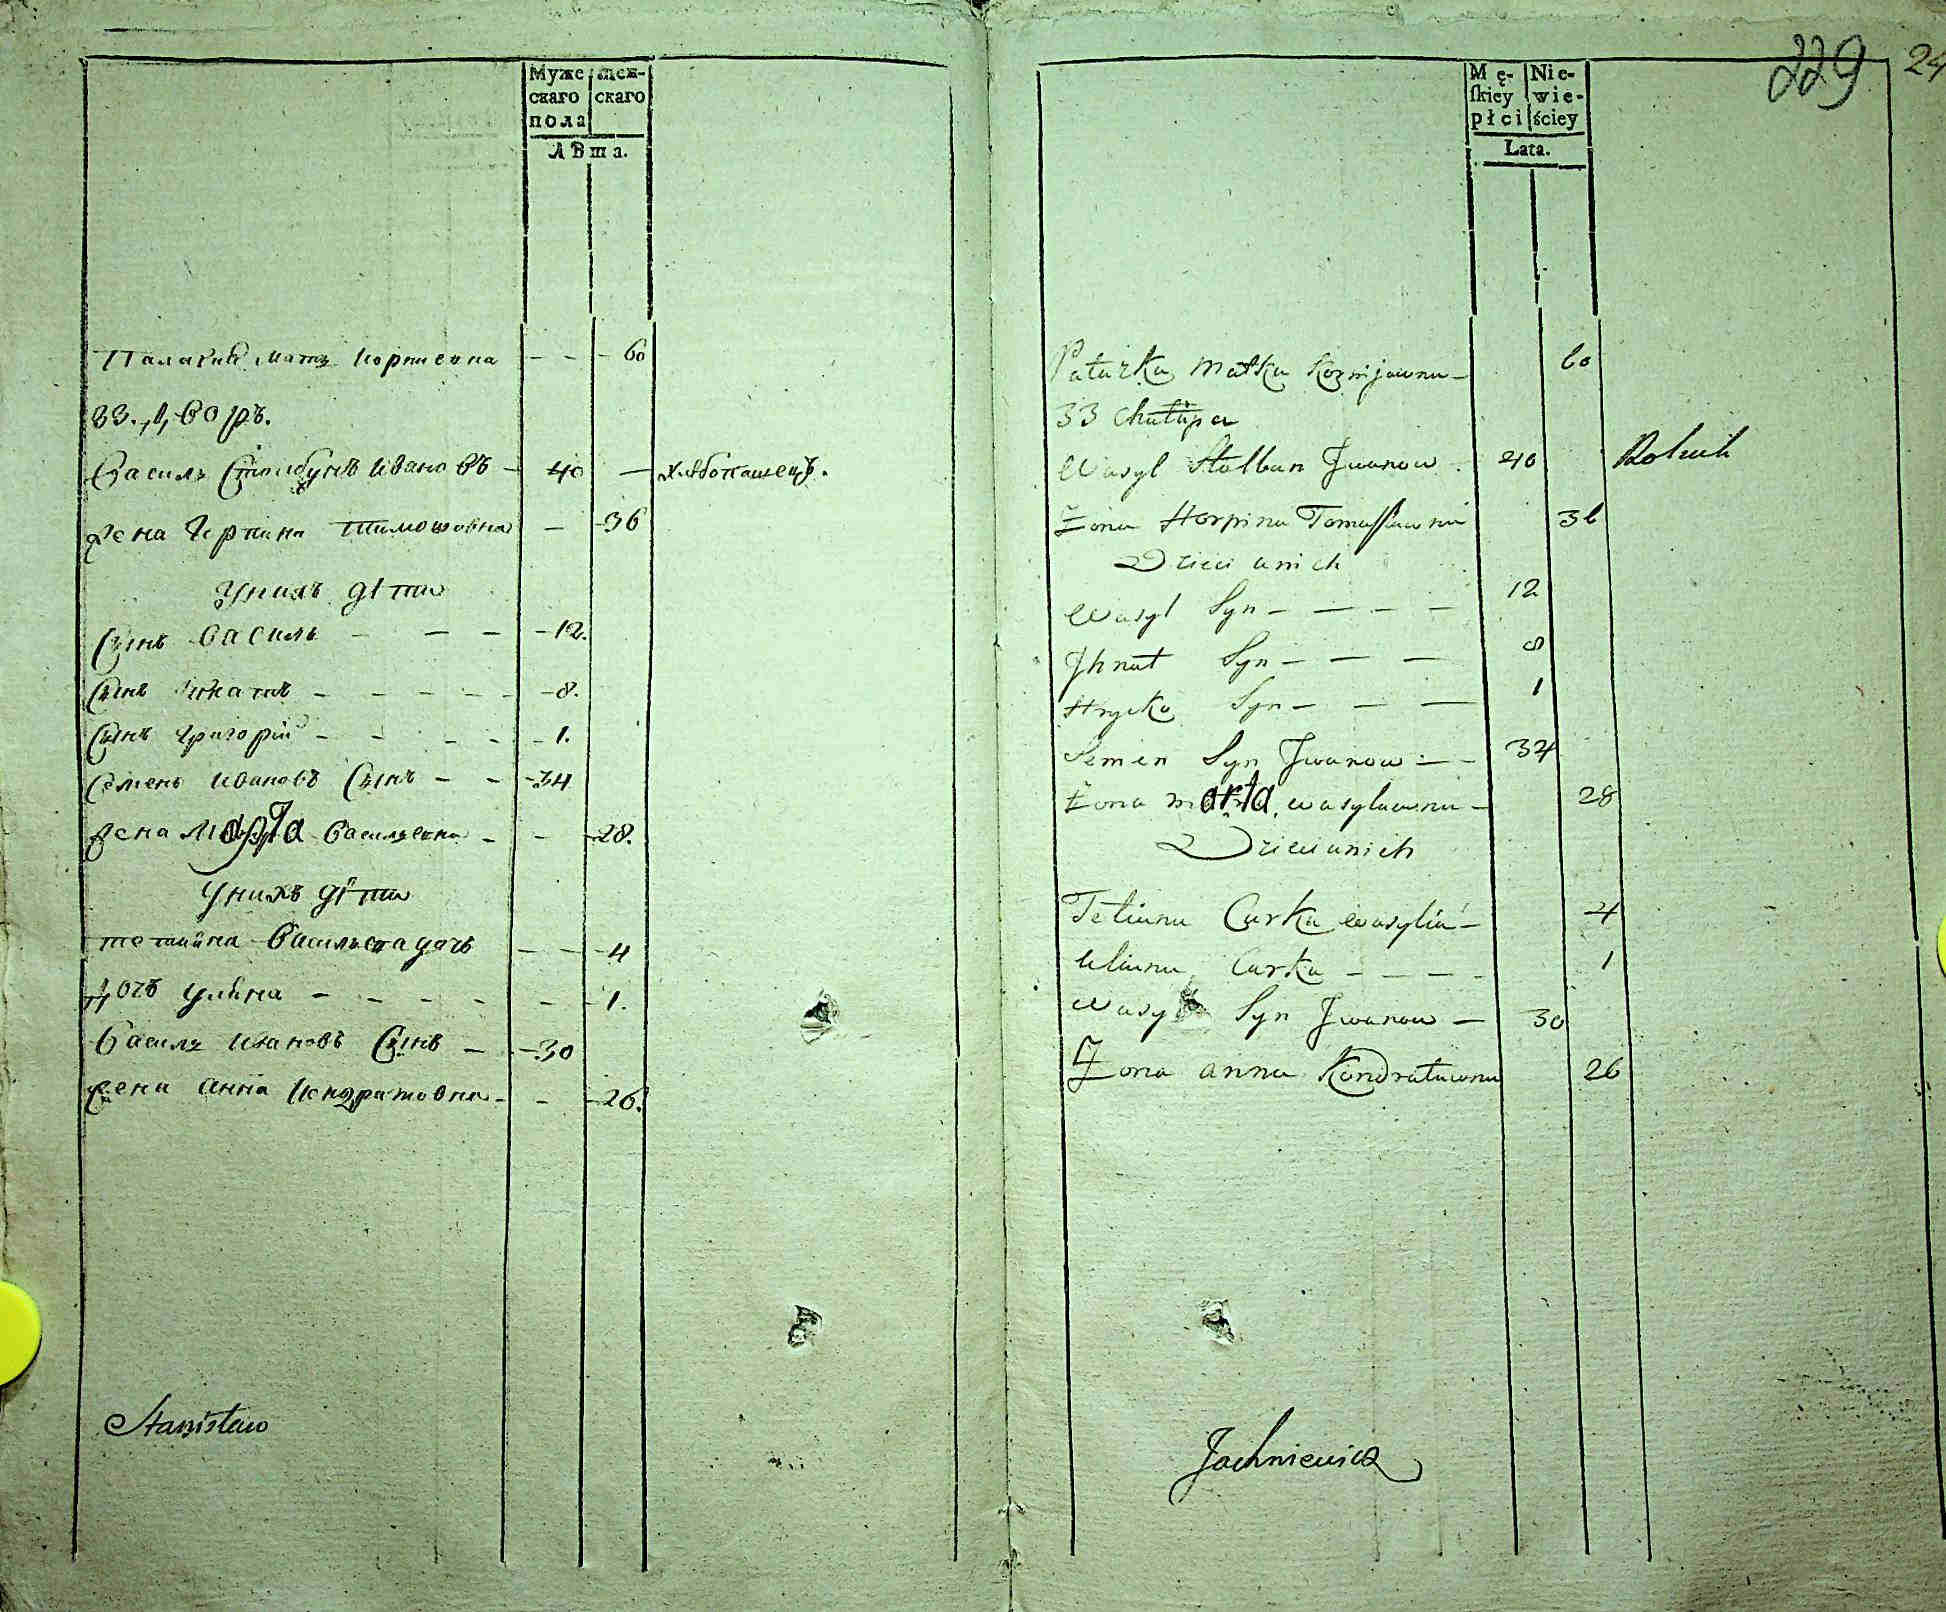 Муже женскаго скаго
пола
Лѣта.
Палагия мать
33. дворъ.
Василь Столбунъ Ивановъ 40 хлѣбопашецъ.
жена Горпина Тимошовна 36
Унихъ дѣти
Сынъ Василь 12.
Сынъ Игнатъ 8.
Сынъ Григорій 1.
Семенъ Ивановъ Сынъ 34
жена Марта Васильевна 28.
Унихъ дѣти
дочь 4
Дочъ Уляна 1.
Василь Ивановъ Сынъ 30
жена Анна Кондратовна 26.
Stanisław
229 24
Mę- Nie-
skiey wie-
płci ściey
Lata.
Matka 60
33 Chałupa
Wasyl Stolbun Jwanow 40 Rolnik
Żona Horpina 36
Dzieci unich
Wasyl Syn 12
Jhnat Syn 8
Hrycko Syn 1
Semen Syn Jwanow 34
Żona marta wasylowna 28
Dzieci unich
Tetiana Curka 4
Uliana Curka 1
Wasyl Syn Jwanow 30
Żona anna Kondratowna 26
Jachniewicz